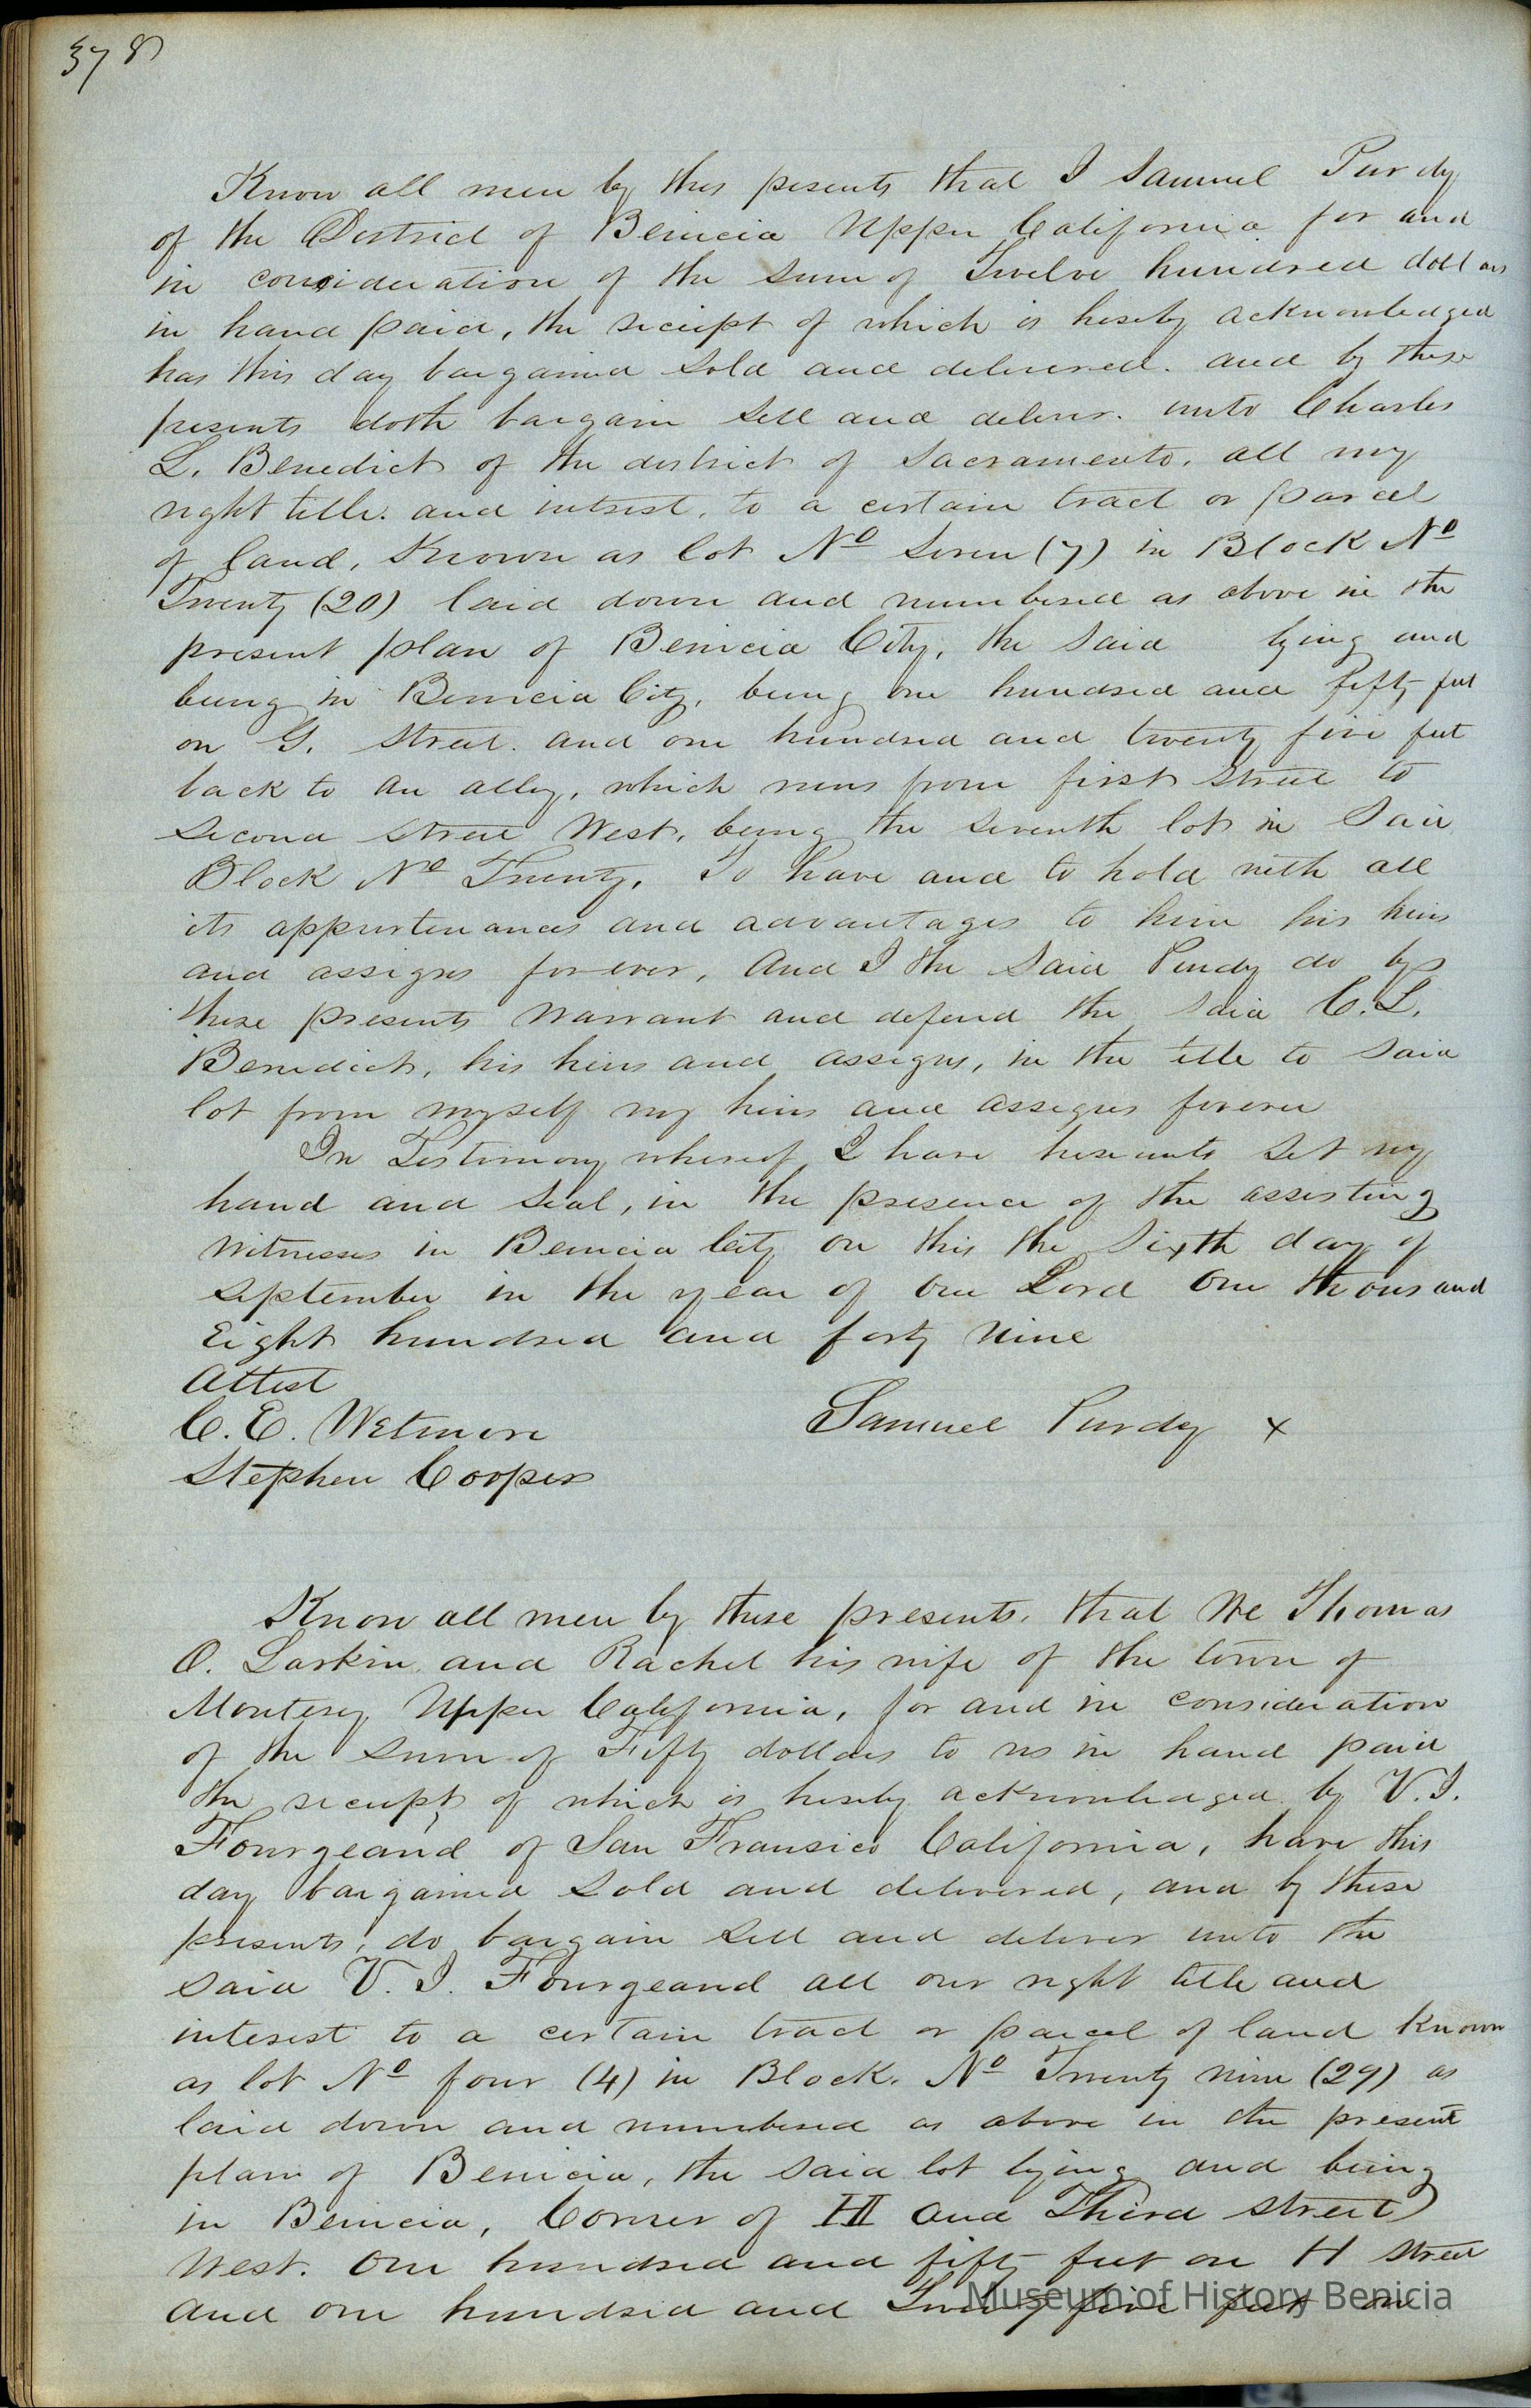 378
Know all men by thes pesents that I Samuel Purdy
of the District of Benicia Upper California for and
in consideration of the sum of Twelve hundred dollars
in hand paid, the receipt of which is hereby acknowledged
has this day bargained sold and delivered. and by these
presents doth bargain sell and deliver. unto Charles
L. Benedict of the district of Sacramento, all my
right title. and intrest, to a certain tract or parcel
of land, Known as lot No Seven (7) in Block No
Twenty (20) laid down and numbered as above in the
present plan of Benicia City, the said lying and
being in Benicia City, being one hundred and fifty feet
on G. Street. and one hundred and twenty five feet
back to an alley, which runs from first Street to
Second Street West, being the seventh lot in Said
Block No Twenty, To have and to hold with all
its appurtenances and advantages to him his heirs
and assigns forever, And I the Said Purdy do by
these presents warrant and defend the said C. L.
Benedict, his heirs and assigns, in the title to said
lot from myself my heirs and assigns forever
In Testimony whereof I have hereunto set my
hand and seal, in the presence of the assisting
Witnesses in Benicia City on this the Sixth day of
September in the year of our Lord One thousand
Eight hundred and forty Nine
Attest
C. E. Wetmore Samuel Purdy x
Stephen Cooper
Know all men by these presents, that We Thomas
O. Larkin and Rachel his wife of the town of
Monterey Upper California, for and in consideration
of the sum of Fifty dollars to us in hand paid
the receipt of which is hereby acknowledged by V. J.
Fourgeand of San Fransico California, have this
day bargained sold and delivered, and by these
presents, do bargain sell and deliver unto the
said V. J. Fourgeand all our right title and
interest to a certain tract or parcel of land Known
as lot No four (4) in Block. No Twenty nine (29) as
laid down and numbered as above in the present
plan of Benicia, the said lot lying and being
in Benicia, Corner of H and Third Street
West. One hundred and fifty feet on H street
and one hundred and Twenty five feet on
Museum of History Benicia